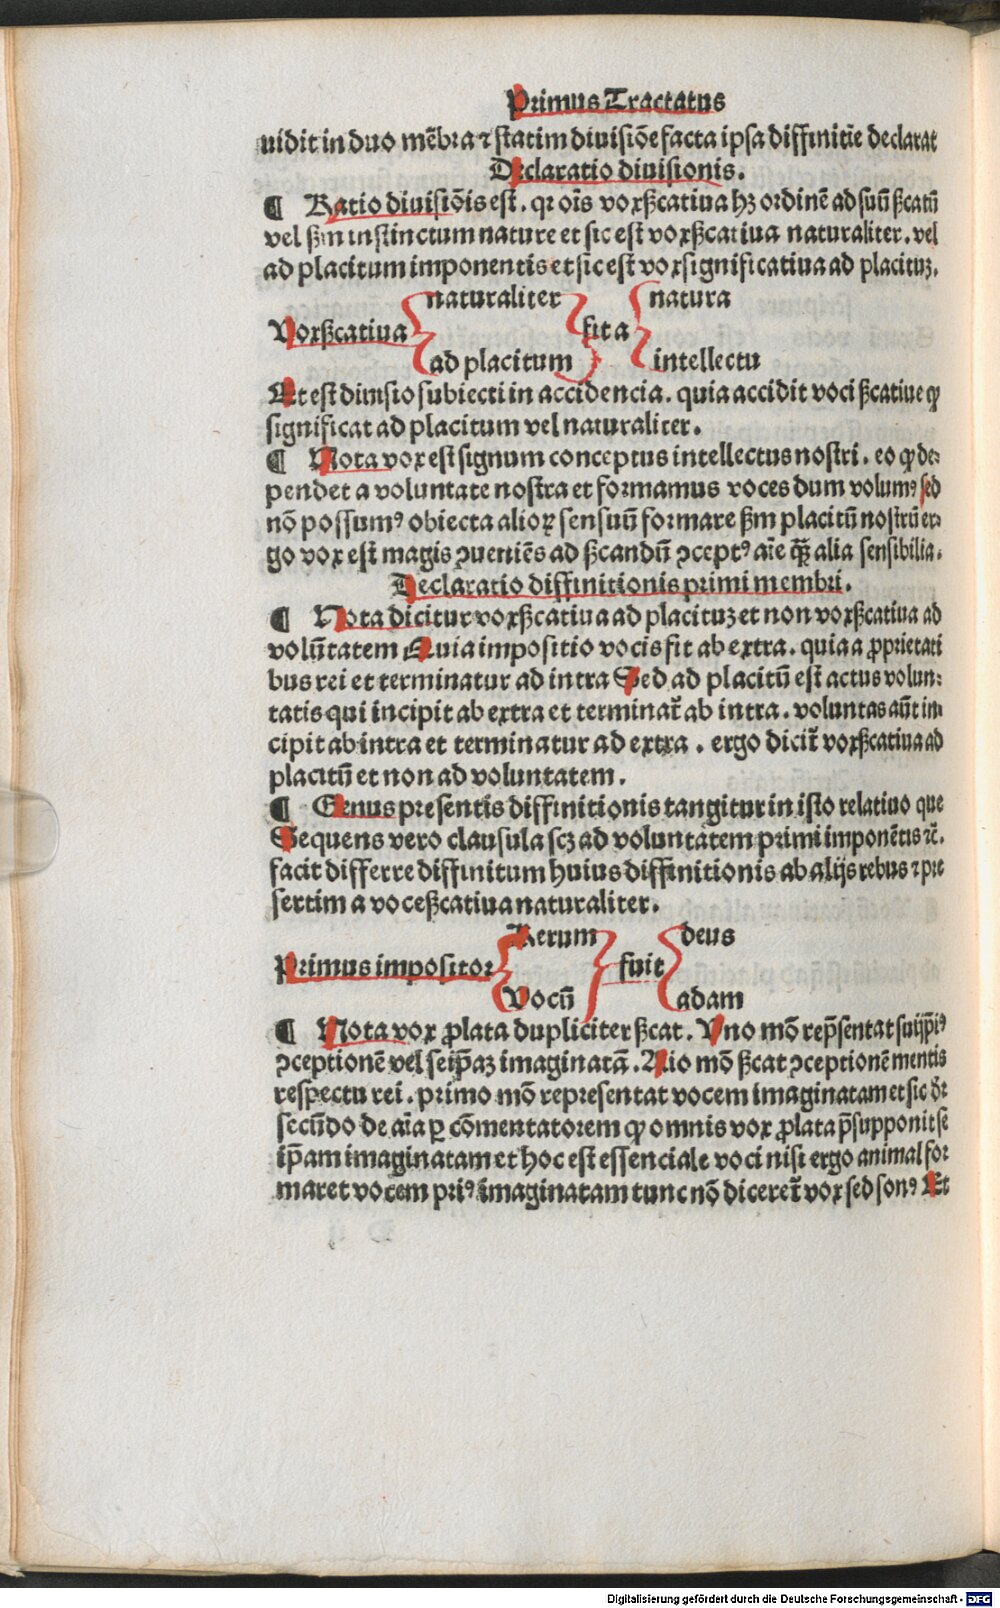 Primus Tractatus
uidit in duo mēbra ⁊ statim diuisiōe facta ipsa diffinitiē declarat
Declaratio diuisionis.
¶ Ratio diuisiōis est. qr oīs vox ßcatiua hꝫ ordinē ad suū ßcatū
vel ßm instinctum nature et sic est vox ßcatiua naturaliter. vel
ad placitum imponentis et sic est vox significatiua ad placituꝫ.
naturaliter natura
Vox ßcatiua fit a
ad placitum intellectu
Et est diuisio subiecti in accidencia. quia accidit voci ßcatiue ꝙ
significat ad placitum vel naturaliter.
¶ Nota vox est signum conceptus intellectus nostri. eo ꝙ de-
pendet a voluntate nostra et formamus voces dum volumꝰ sed
nō possumꝰ obiecta alioꝝ sensuū formare ßm placitū nostrū er-
go vox est magis ꝯueniēs ad ßcandū ꝯceptꝰ aīe ꝙ̃ alia sensibilia.
Declaratio diffinitionis primi membri.
¶ Nota dicitur vox ßcatiua ad placituꝫ et non vox ßcatiua ad
volūtatem Quia impositio vocis fit ab extra. quia a ꝓprietati
bus rei et terminatur ad intra Sed ad placitū est actus volun-
tatis qui incipit ab extra et terminat᷑ ab intra. voluntas aūt in-
cipit ab intra et terminatur ad extra. ergo dicit᷑ vox ßcatiua ad
placitū et non ad voluntatem.
¶ Genus presentis diffinitionis tangitur in isto relatiuo que
Sequens vero clausula scꝫ ad voluntatem primi imponētis ⁊c̄.
facit differre diffinitum huius diffinitionis ab alijs rebus ⁊ pre
sertim a voce ßcatiua naturaliter.
Rerum deus
Primus impositor fuit
Vocū adam
¶ Nota vox ꝓlata dupliciter ßcat. Vno mō rep̄sentat suijp̄iꝰ
ꝯceptionē vel seip̄aꝫ imaginatā. Alio mō ßcat ꝯceptionē mentis
respectu rei. primo mō representat vocem imaginatam et sic dr̄
secūdo de aīa ꝑ cōmentatorem ꝙ omnis vox ꝓlata p̄supponit se
ip̄am imaginatam et hoc est essenciale voci nisi ergo animal for
maret vocem priꝰ imaginatam tunc nō diceret᷑ vox sed sonꝰ Et
Digitalisierung gefördert durch die Deutsche Forschungsgemeinschaft - DFG